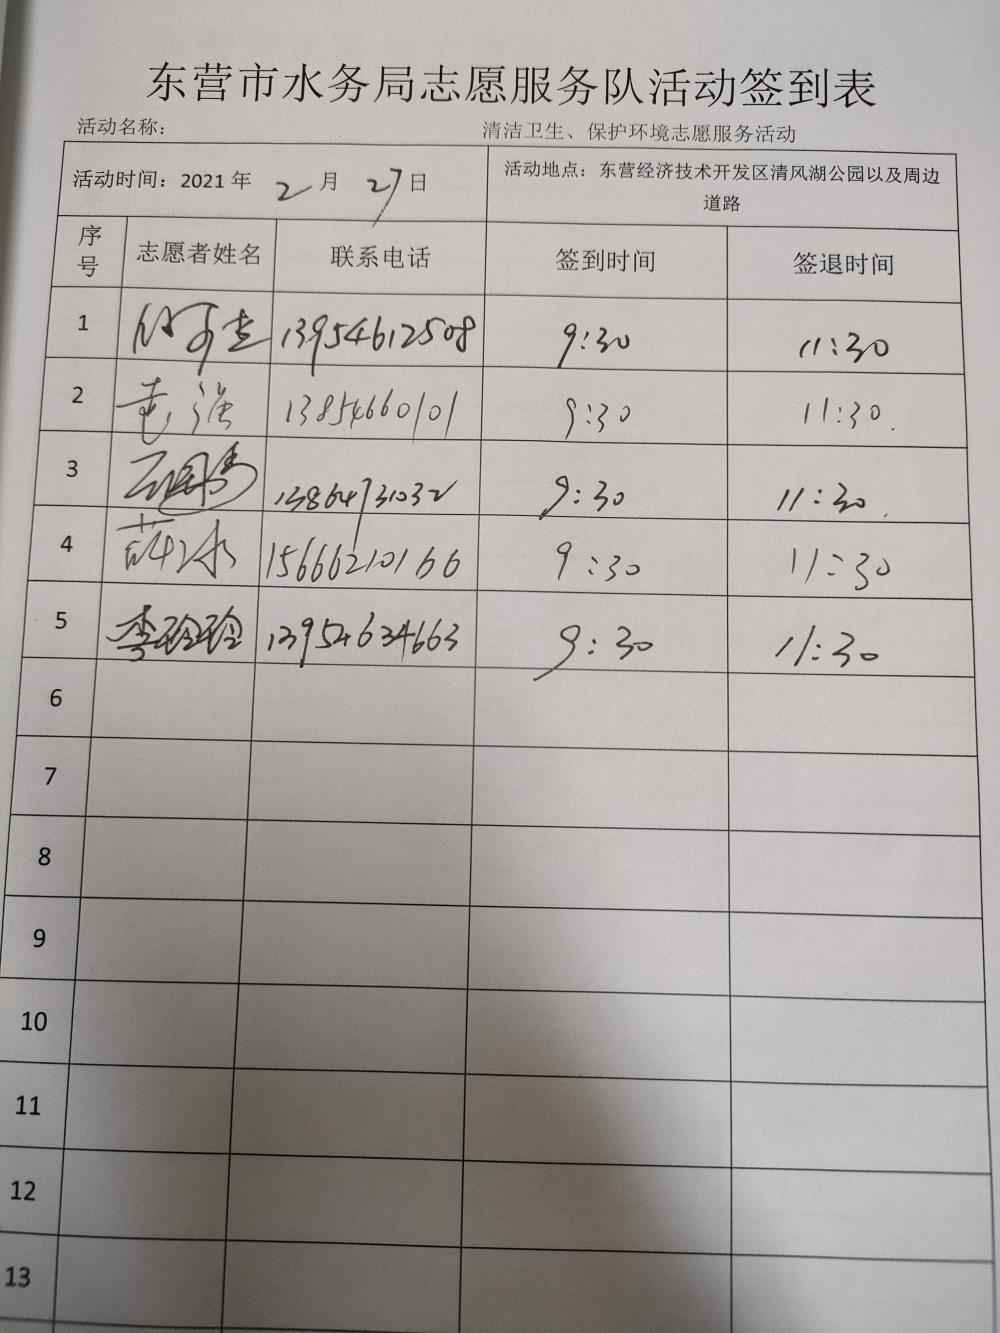 东营市水务局志愿服务队活动签到表
活动名称： 清洁卫生、保护环境志愿服务活动
活动时间：2021年 2月 27日 活动地点：东营经济技术开发区清风湖公园以及周边
道路
序号 志愿者姓名 联系电话 签到时间 签退时间
1 13954612508 9:30 11:30
2 13854660101 9:30 11:30.
3 13864731032 9:30 11:30.
4 薛冰 15666210166 9:30 11:30
5 李玲玲 13954634663 9:30 11:30
6
7
8
9
10
11
12
13